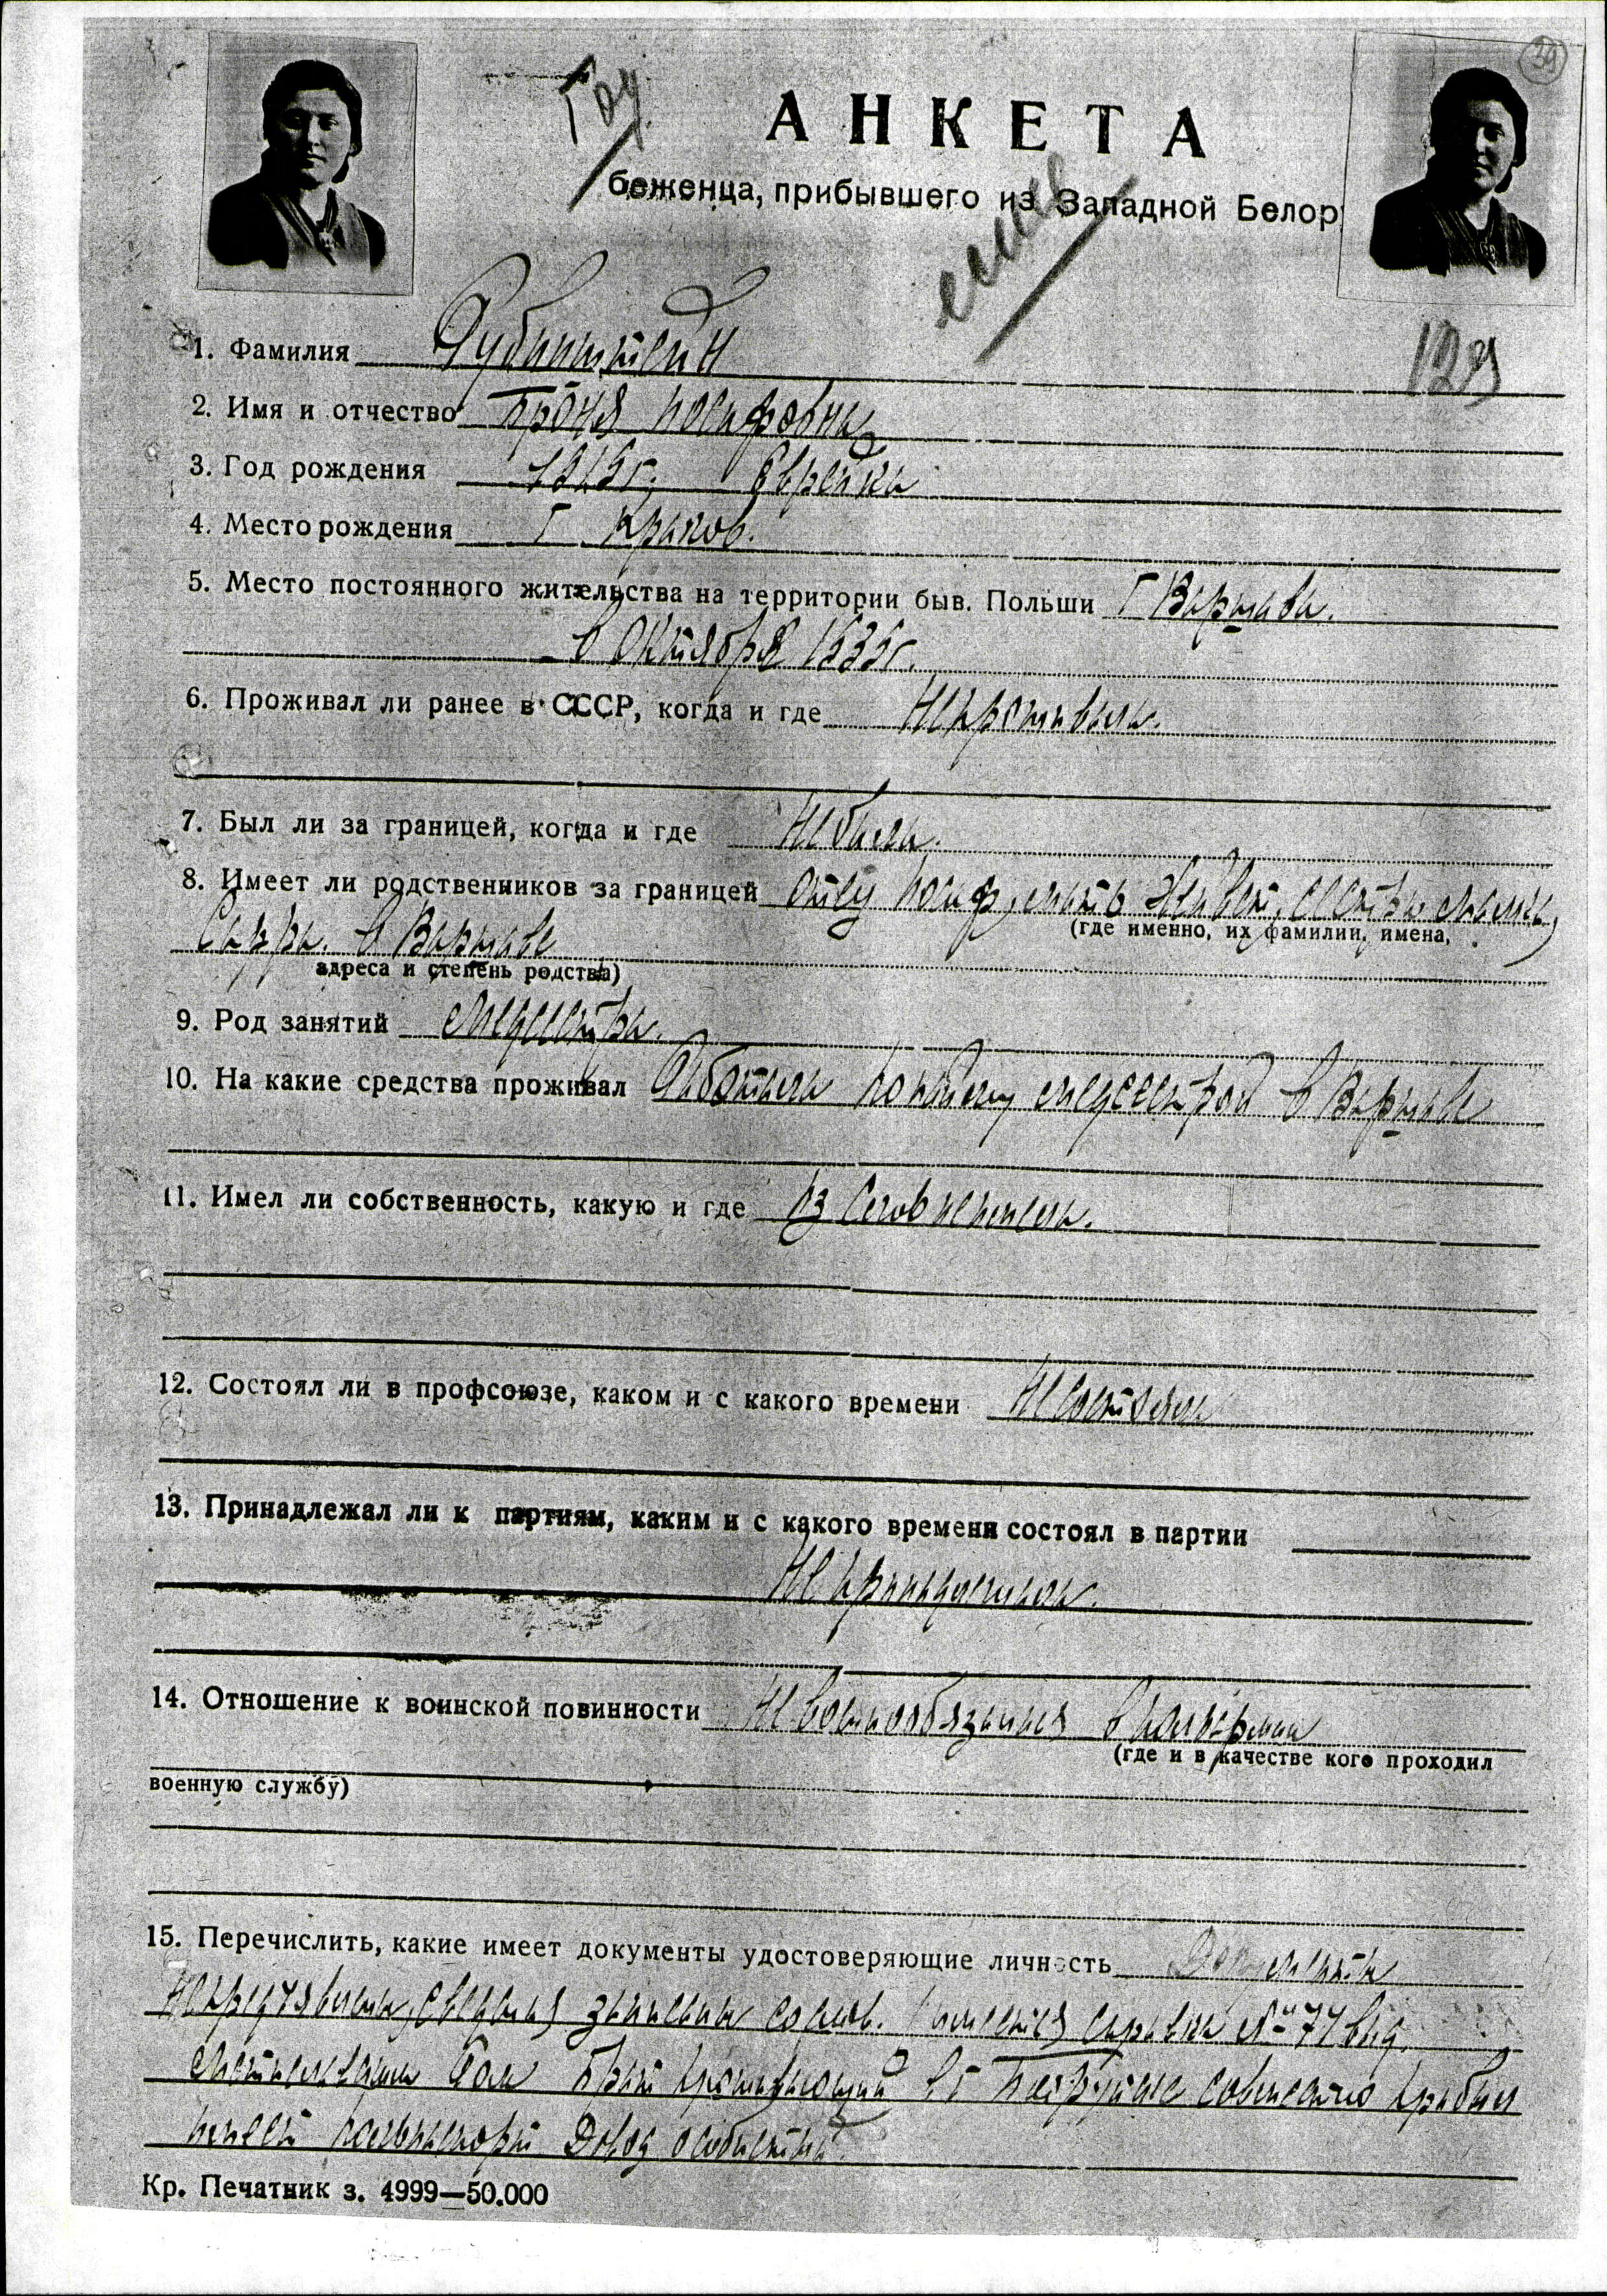 39
Год
АНКЕТА
беженца, прибывшего из Западной Белор
1. Фамилия Рубинштейн
2. Имя и отчество Броня Иосифовна
3. Год рождения 1919г. Еврейка
4. Место рождения г Краков.
5. Место постоянного жительства на территории быв. Польши г Варшава.
в октябре 1939г.
6. Проживал ли ранее в СССР, когда и где Не проживала.
7. Был ли за границей, когда и где Не была.
8. Имеет ли родственников за границей отец Иосиф, мать сестра
(где именно, их фамилии, имена,
Сарра. в Варшаве
адреса и степень родства)
9. Род занятий медсестра.
10. На какие средства проживал Работала по найму медсестрой в Варшаве
11. Имел ли собственность, какую и где Из слов не имела.
12. Состоял ли в профсоюзе, каком и с какого времени Не состояла
13. Принадлежал ли к партиям, каким и с какого времени состоял в партии
Не принадлежала.
14. Отношение к воинской повинности Не военнообязанная
(где и в качестве кого проходил
военную службу)
15. Перечислить, какие имеет документы удостоверяющие личность Документы
не предъявила, сведения записаны со слов. имеется справка № 77
брат проживающий в г совместно прибыл
имеет
Кр. Печатник з. 4999—50.000